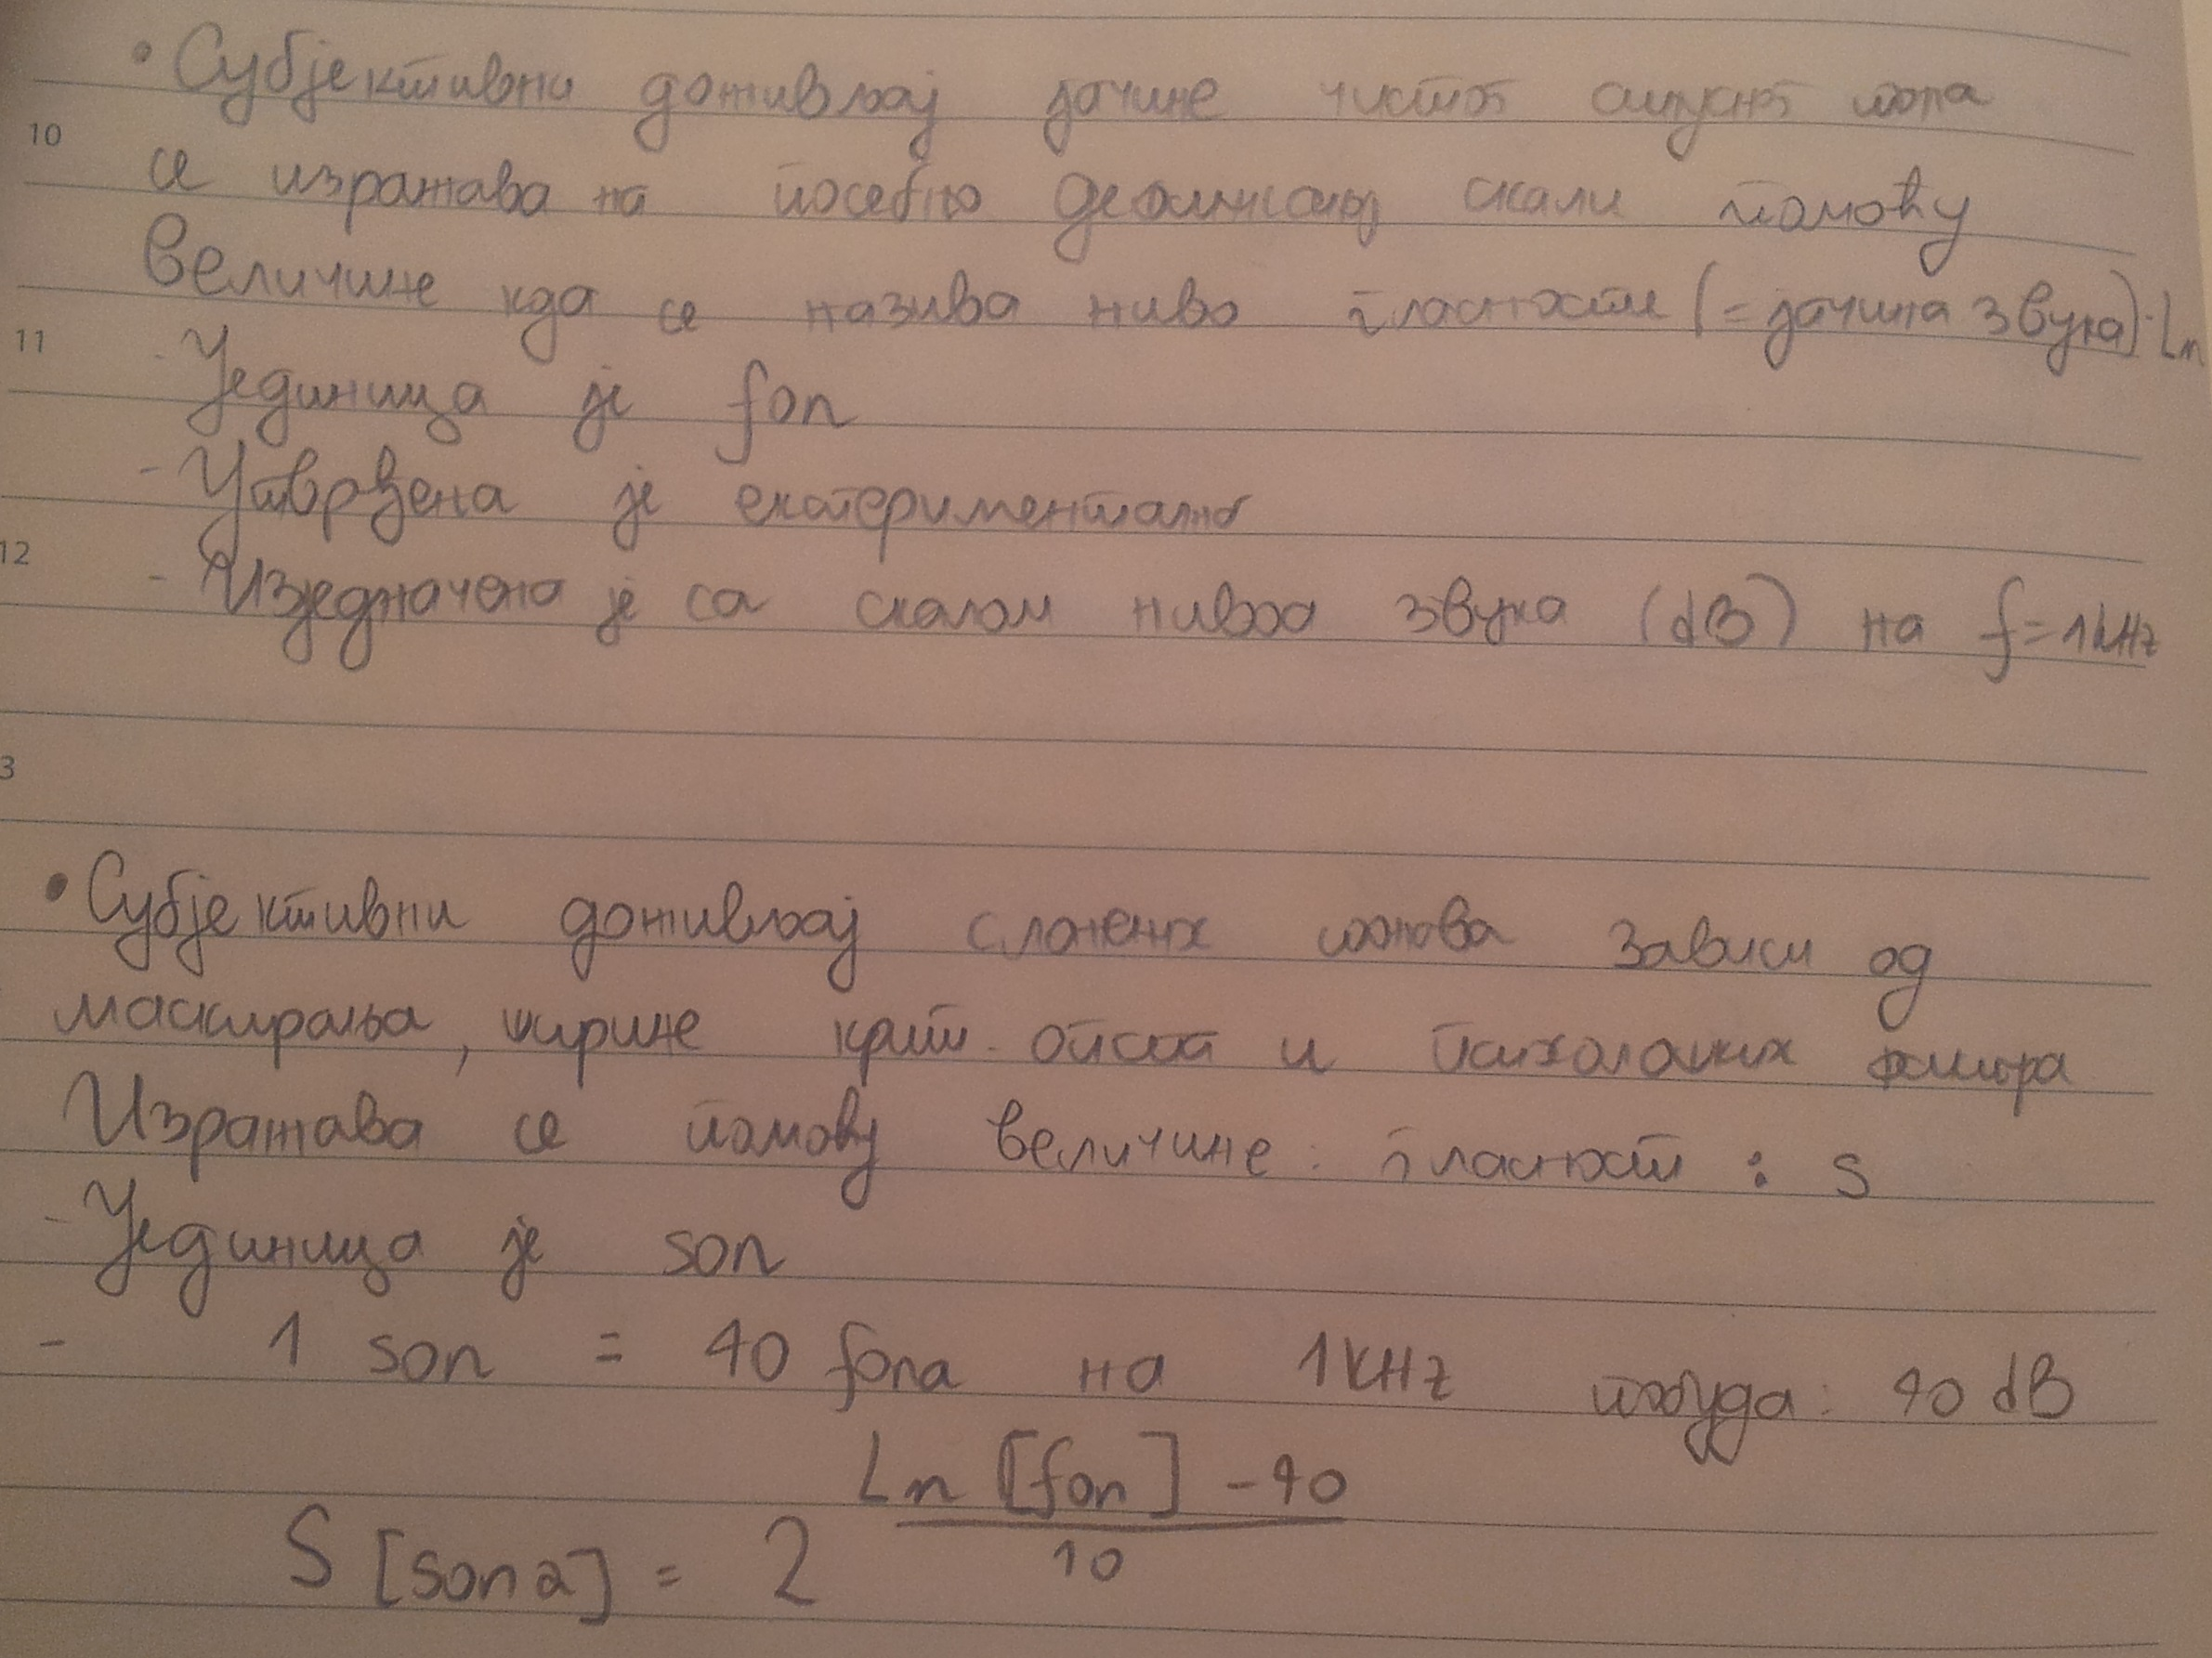 • Субјективни доживљај јачине чистог синусног тона
10
се изражава на посебно дефинисаној скали помоћу
величине која се назива ниво гласности (= јачина звука): Ln
11
- Јединица је fon
- Утврђена је експериментално
12
- Изједначена је са скалом нивоа звука (dB) на f=1kHz
3
• Субјективни доживљај сложених тонова зависи од
маскирања, ширине крит. опсега и психолошких фактора
Изражава се помоћу величине: гласност : S
- Јединица је son
- 1 son = 40 fona на 1KHz отуда: 40 dB
Ln [fon] - 40
S [sona] = 2
10